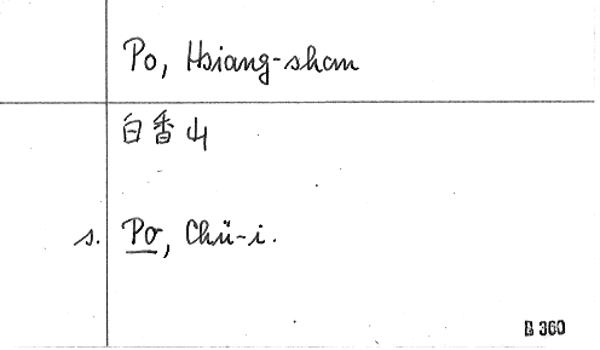 Po, Hsiang-shan
白香山
s. Po, Chü-i.
B 360